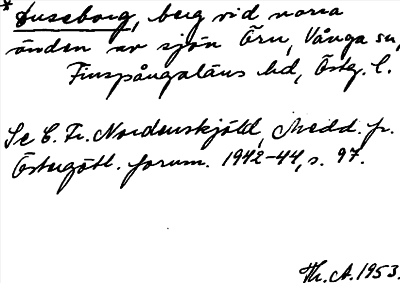 *Duseborg, berg vid norra
änden av sjön Örn, Vånga sn,
Finspångaläns hd, Östg. l.
Se C. Fr. Nordenskjöld, Medd. fr.
Östergötl. fornm. 1942-44, s. 97.
Th. A. 1953.